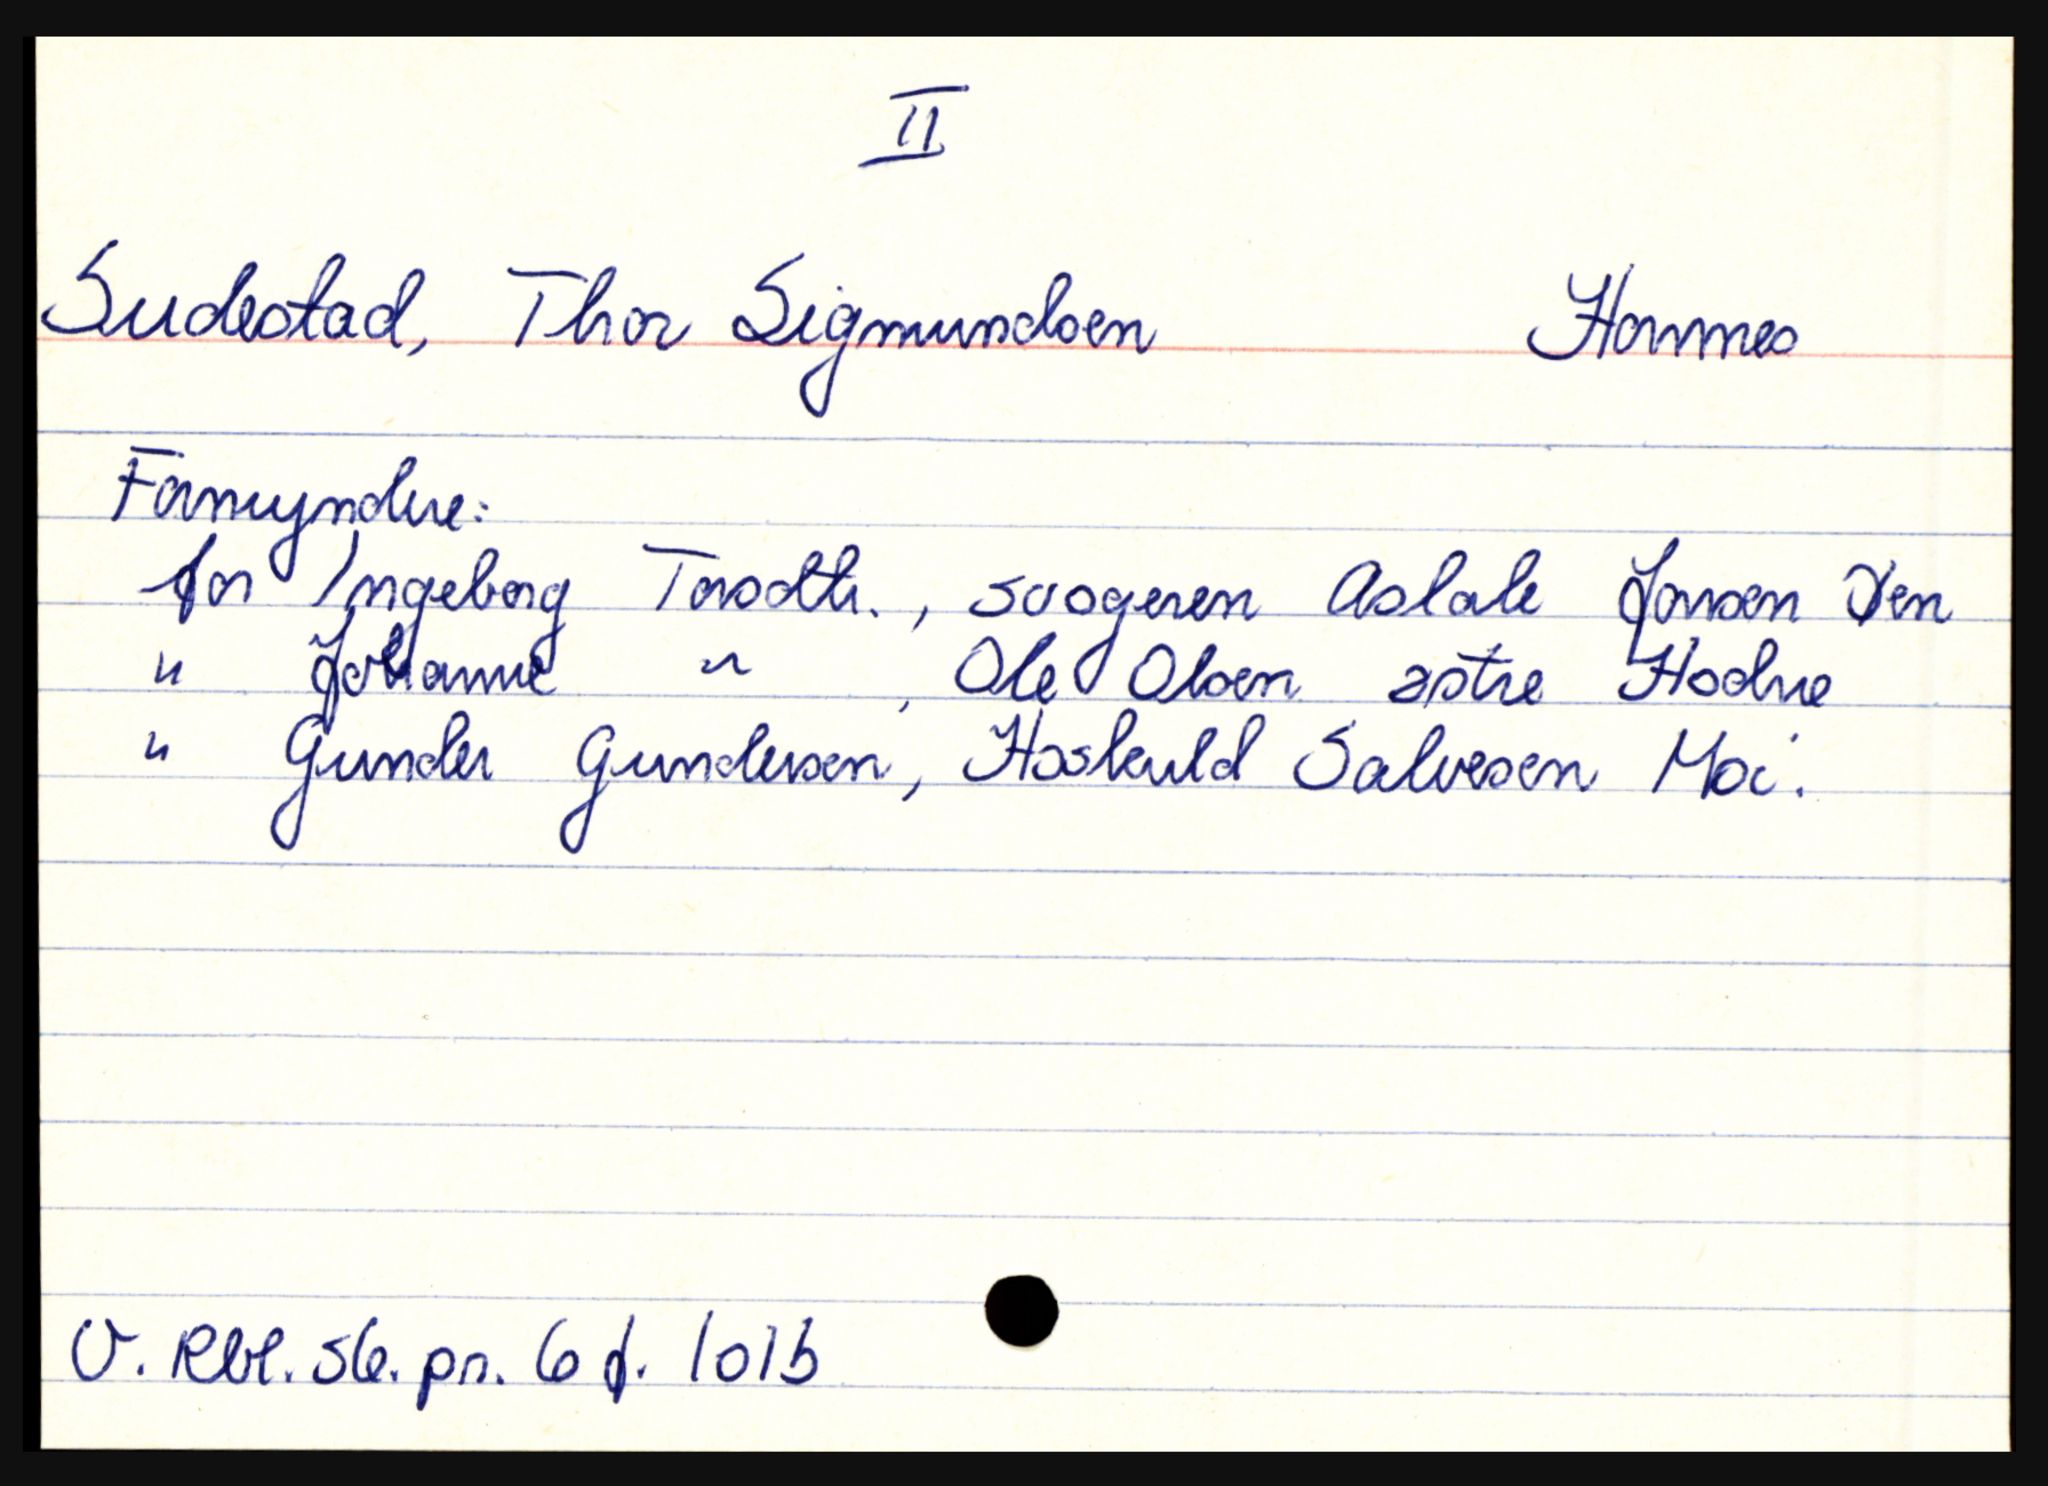 II
Sudestad, Thor Sigmundsen Hornnes
Formyndere:
for Ingeborg Torsdtr., svogeren Aslak Jonsen Øen
" Johanne " , Ole Olsen østre Hodne
" Gunder Gundersen, Høskuld Salvesen Moi.
V. Rbl. sk. pr. 6 f. 101b